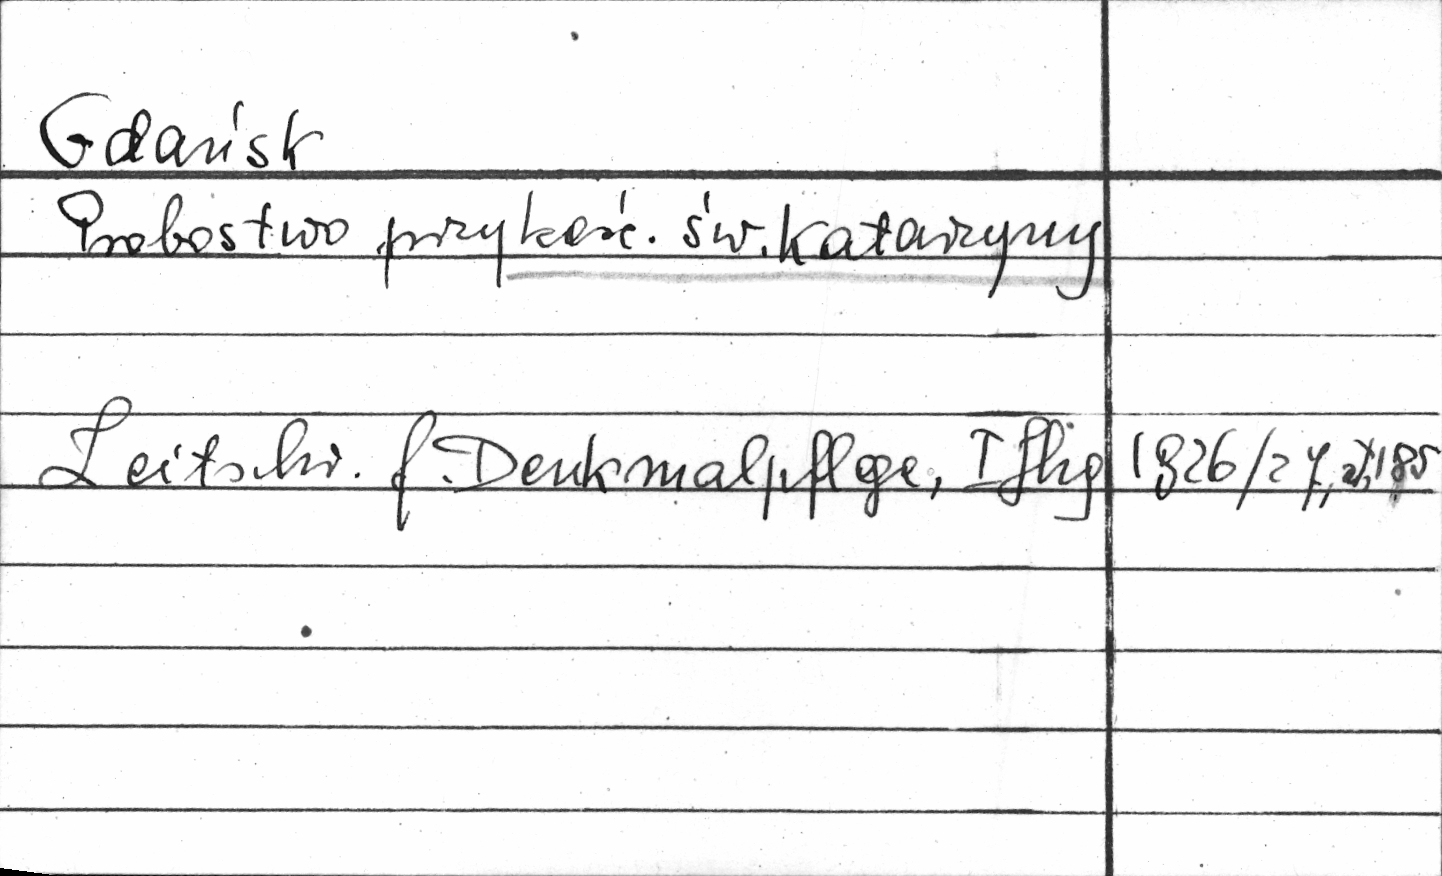 Gdańsk
Probostwo przy kość. św. Katarzyny
Zeitschr. f. Denkmalpflege, I Jhg 1926/27, 185